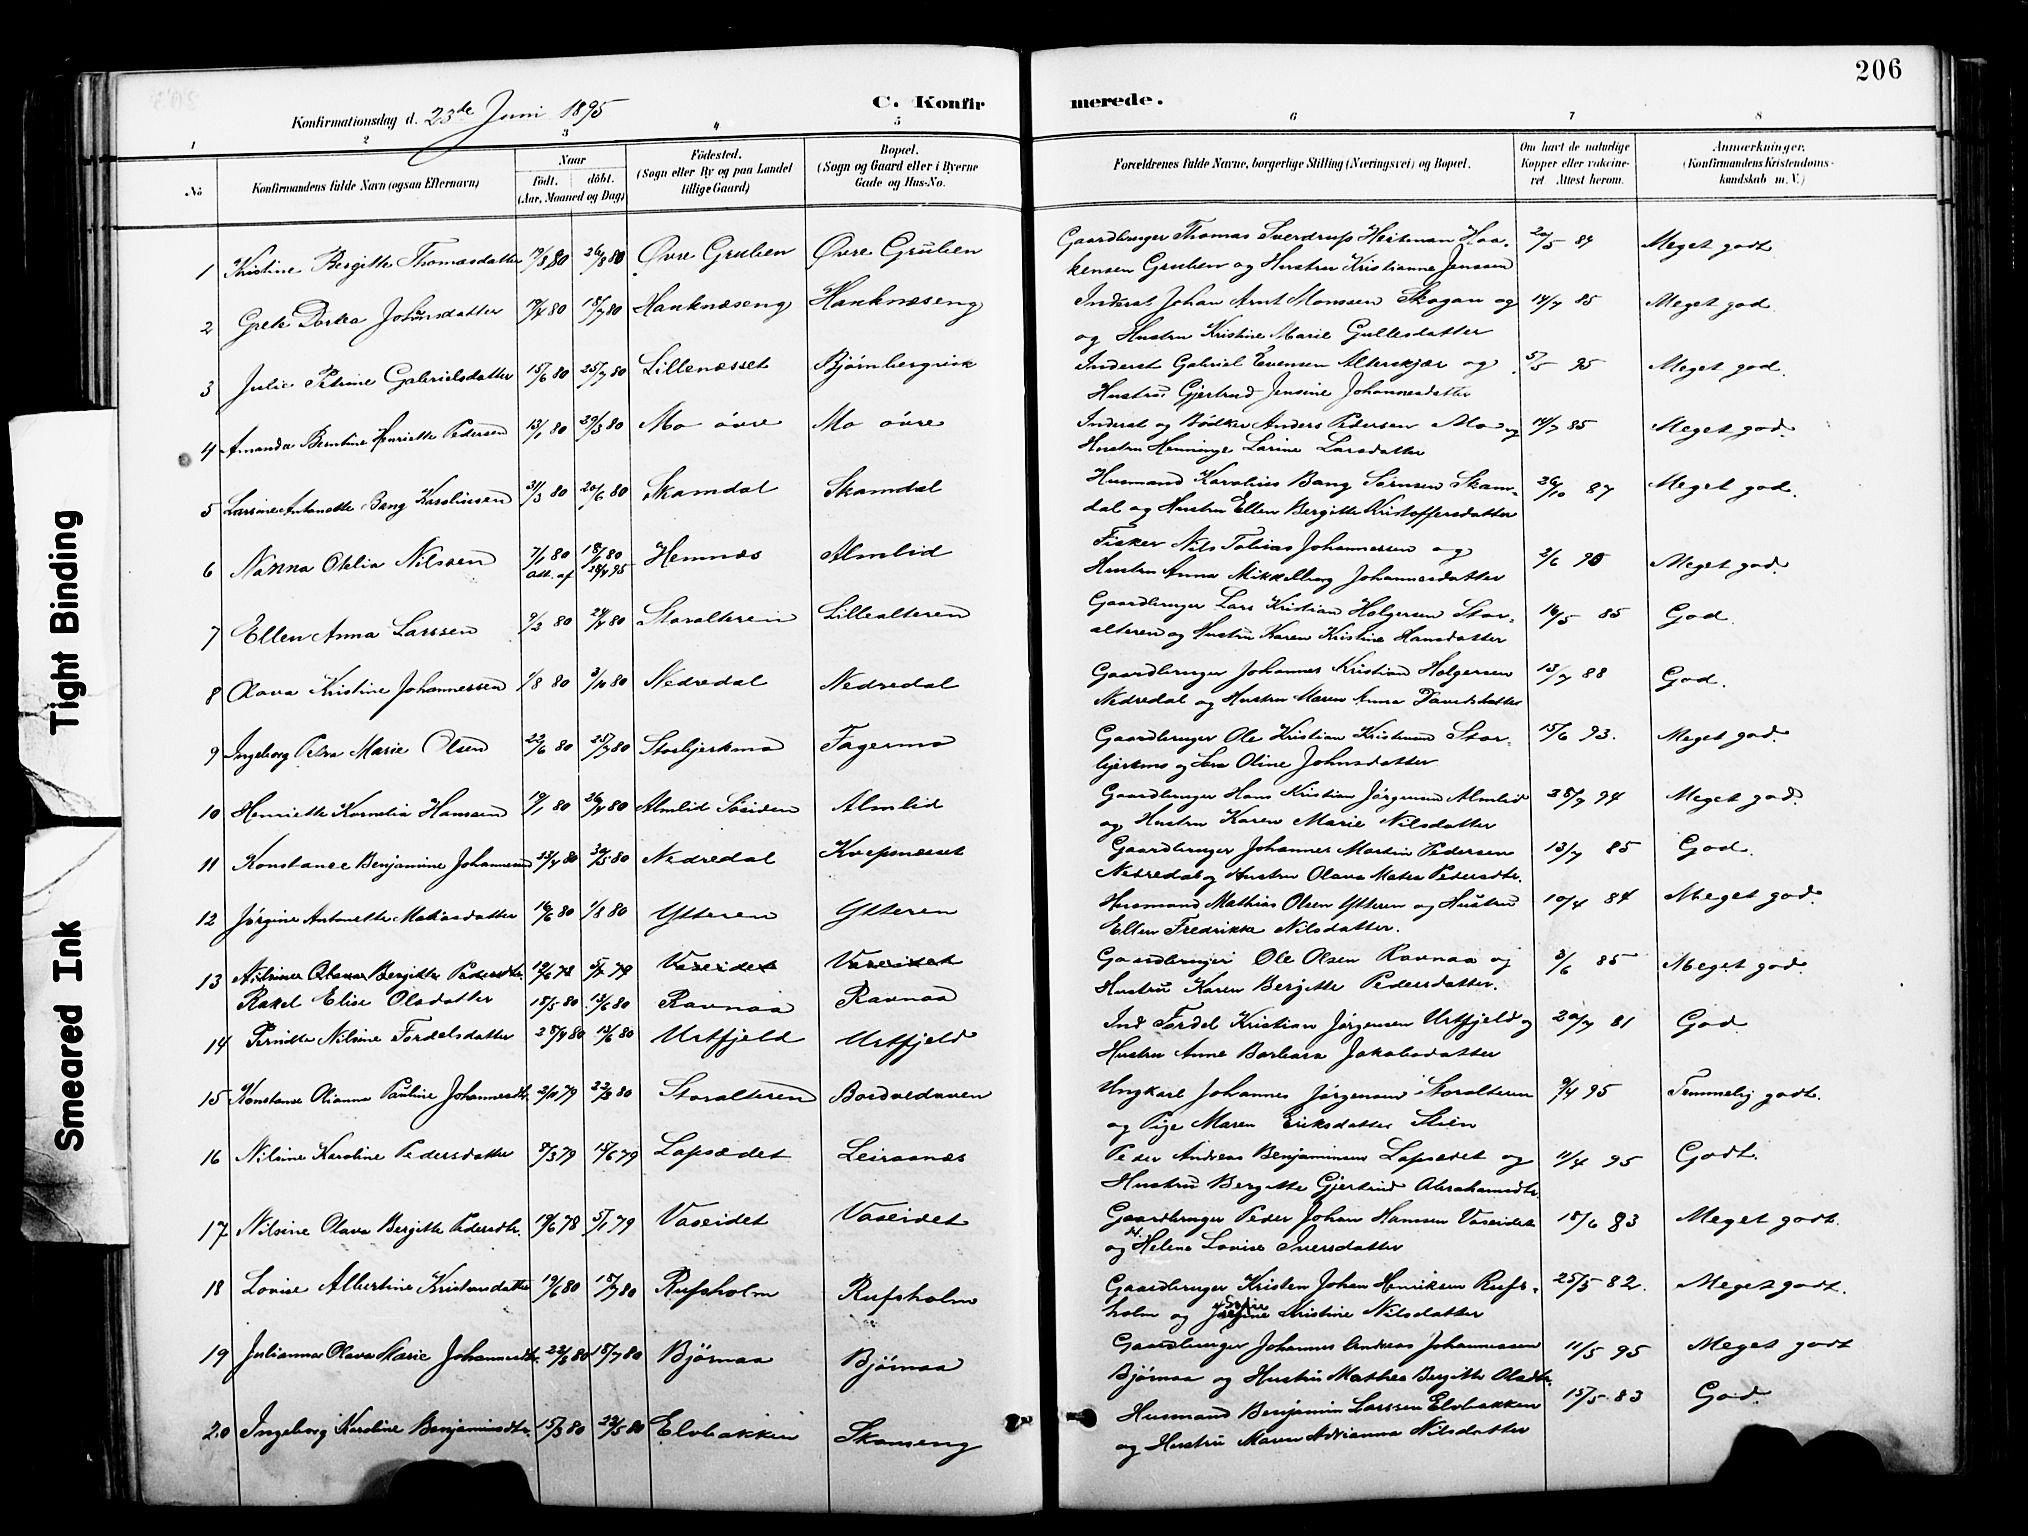 206
C. Konfir merede.
Konfirmationsdag d. 23de Juni 1895
1 2 3 4 5 6 7 8
No
Konfirmandens fulde Navn (ogsaa Efternavn)
Naar
Födt. döbt.
(Aar, Maaned og Dag)
Födested.
(Sogn eller By og paa Landet
tillige Gaard)
Bopæl.
(Sogn og Gaard eller i Byerne
Gade og Hus-No.
Forældrenes fulde Navne, borgerlige Stilling (Næringsvei) og Bopæl.
Om havt de naturlige
Kopper eller vakcine-
ret Attest herom.
Anmærkninger.
(Konfirmandens Kristendoms-
kundskab m. V.)
1 Kristine Bergitte Thomasdatter 19/8 80 26/8 80 Øvre Gruben Øvre Gruben Gaardbruger Thomas Sverdrup Heitman Haa- 20/5 84 Meget godt
kensen Gruben og Hustru Kristianne Jenssen
2 Grete Dortea Johansdatter 19/4 80 18/7 80 Hauknæseng Hauknæseng Inderst Johan Arnt Monssen Skogan og 14/7 85 Meget god.
og Hustru Kristine Marie Gullesdatter
3 Julie Petrine Gabrielsdatter 15/6 80 25/7 80 Lillenæsset Bjørnbergvik Inderst Gabriel Evensen Alterskjær og 5/5 95 Meget god.
Hustru Gjertrud Jensine Johannesdatter
4 Amanda Berntine Henriette Pedersen 13/1 80 29/3 80 Mo övre Mo övre Inderst og Bødker Anders Pedersen Mo og 14/7 85 Meget god.
Hustru Henninge Larine Larsdatter
5 Larsine Antonette Bang Karolinsen 31/3 80 20/6 80 Skamdal Skamdal Husmand Karolius Bang Sørnsen Skam- 26/10 87 Meget god.
dal og Hustru Ellen Bergitte Kristoffersdatter
6 Nanna Otelia Nilssen 7/1 80 18/1 80 Hemnæs Almlid Fisker Nils Tobias Johannessen og 2/6 90 Meget god.
Att. af 28/4 95 Hustru Anna Mikkelborg Johannesdatter
7 Ellen Anna Larssen 9/2 80 24/4 80 Storalteren Lillealteren Gaardbruger Lars Kristian Holgersen Stor- 14/5 85 God.
alteren og Hustru Karen Kristine Hansdatter
8 Olava Kristine Johannessen 1/8 80 3/10 80 Nedredal Nedredal Gaardbruger Johannes Kristian Holgersen 13/7 88 God.
Nedredal og Hustru Maren Anna Davidsdatter
9 Ingeborg Petra Marie Olsen 22/6 80 25/7 80 Storbjerkmo Fagermo Gaardbruger Ole Kristian Kristensen Stor- 15/6 93. Meget god.
bjerkmo og Sara Oline Johnsdatter
10 Henriette Kornelia Hanssen 19/1 80 26/4 80 Almlid Søsiden Almlid Gaardbruger Hans Kristian Jørgensen Almlid 28/7 94 Meget god.
og Hustru Karen Marie Nilsdatter
11 Konstance Benjamine Johannessen 23/4 80 30/5 80 Nedredal Kvepsnesset Gaardbruger Johannes Martin Pedersen 13/7 85 God.
Nedredal og Hustru Olava Matea Pedersdtr.
12 Jørgine Antonette Matiasdatter 16/6 80 1/8 80 Ytteren Ytteren Husmand Mathias Olsen Ytteren og Hustru 10/4 84 Meget god.
Ellen Fredrikke Nilsdatter.
13 Nilsine Olava Bergitte Pedersdtr. 19/6 78 5/1 79 Vaseidet Vaseidet Gaardbruger Ole Olsen Ravnaa og 3/6 85 Meget god.
Rakel Elise Olsdatter 18/5 80 13/6 80 Ravnaa Ravnaa Hustru Karen Bergitte Pedersdatter.
14 Berndte Nilsine Fordelsdatter 28/4 80 13/6 80 Urtfjeld Urtfjeld Ind Fordel Kristian Jørgensen Urtfjeld og 20/7 81 God
Hustru Anne Barbara Jakobsdatter
15 Konstanse Olianna Pauline Johannesdt. 2/11 79 22/3 80 Storalteren Bordvedaven Ungkarl Johannes Jørgensen Storalteren 9/4 95 Temmelig godt.
og Pige Maren Eriksdatter Stien
16 Nilsine Karoline Pedersdatter 8/3 79 15/6 79 Lapsædet Leiraanæs Peder Andreas Benjaminsen Lapsædet og 11/4 95 Godt.
Hustru Bergitte Gjertrud Abrahamsdtr
17 Nilsine Olava Bergitte Pedersdtr. 19/6 78 5/1 79 Vaseidet Vaseidet Gaardbruger Peder Johan Hansen Vaseidet 18/6 83 Meget godt.
og H. Helena Lovise Iversdatter
18 Lovise Albertine Kristensdatter 19/6 80 18/7 80 Rufsholm Rufsholm Gaardbruger Kristen Johan Henriksen Rufs- 25/5 82. Meget godt.
holm og Sofie Kristine Nilsdatter
19 Julianna Olava Marie Johannesdtr. 22/5 80 18/7 80 Bjørnaa Bjørnaa Gaardbruger Johannes Andreas Johannessen 11/5 95 Meget godt
Bjørnaa og Hustru Mathea Bergitte Olsdtr.
20 Ingeborg Karoline Benjaminsdtr. 15/3 80 22/5 80 Elvbakken Skonseng Husmand Benjamin Larssen Elvbakken 15/5 83 God.
og Hustru Maren Adrianna Nilsdatter
Tight Binding
Smeared Ink